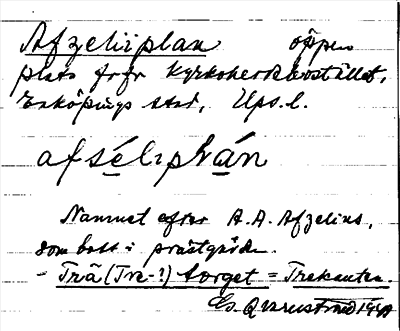 Afzeliiplan öppen
plats frfr kyrkoherdebostället,
Enköpings stad, Ups.l.
afséliplán
Namnet efter A.A. Afzelius,
som bott i prästgården.
- Trä (Tre-?) torget = Trekanten